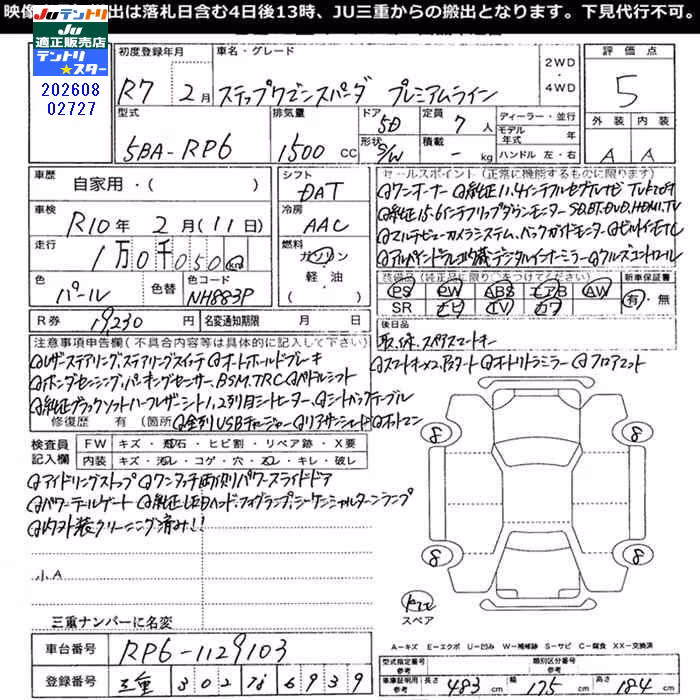 映像 出は落札日含む4日後13時、JU三重からの搬出となります。下見代行不可。
JUテントリ
JU適正販売店
テントリ★スター
202608
02727
初度登録年月 車名・グレード 2WD・4WD 評価点
R7 2月 ステップワゴンスパーダ プレミアムライン 5
型式 排気量 ドア 5D 形状 S/W 定員 7人 積載 - kg
5BA-RP6 1500 CC
ディーラー・並行
モデル年式 年
ハンドル 左・右
外装 内装
A A
車歴 自家用・( )
シフト DAT
車検 R10年 2月(11日)
冷房 AAC
走行 1万0千050 km
燃料 ガソリン・軽油・( )
色 パール 色替 色コード NH883P
R券 19230 円 名変通知期限 月 日
セールスポイント(正常に機能するものに限ります)
◎ワンオーナー ◎純正11.4インチフルセグTVナビ
◎純正15.6インチリップダウンモニター SD.BT.DVD.HDMI.TV
◎マルチビューカメラシステム、バックガイドモニター ◎ビルトインETC
◎アルパインドラレコ内蔵デジタルインナーミラー ◎クルーズコントロール
装備品(純正品に限り○をつけてください)
PS PW ABS エアB AW
SR ナビ TV カワ
新車保証書
有・無
後日品
取、保、スペアスマートキー
注意事項申告欄(不具合内容等は具体的に記入して下さい)
◎レザーステアリング、ステアリングスイッチ ◎オートホールドブレーキ
◎ホンダセンシング、パーキングセンサー、BSM、TRC ◎パドルシフト
◎純正ブラックソフトハーフレザーシート1、2列目シートヒーター、◎シートバックテーブル
修復歴 有 (箇所 ◎全列USBチャージャー ◎リアサンシェード ◎オットマン
◎スマートキー×2、Pスタート ◎オートリトラミラー ◎フロアマット
検査員記入欄
FW キズ・飛石・ヒビ割・リペア跡・X要
内装 キズ・汚レ・コゲ・穴・ズレ・キレ・破レ
◎アイドリングストップ ◎ワンタッチ両側パワースライドドア
◎パワーテールゲート ◎純正LEDヘッド、フォグランプ、シーケンシャルターンランプ
◎内外装クリーニング済み!!
小A
8 8
8 8
スペア
三重ナンバーに名変
A=キズ E=エクボ U=凹み W=補修跡 S=サビ C=腐食 XX=交換済
車台番号 RP6-1129103
登録番号 三重 302 な 6939
型式指定番号 参考 類別区分番号 参考
車庫証明用 参考 長さ 483 cm 幅 175 cm 高さ 184 cm